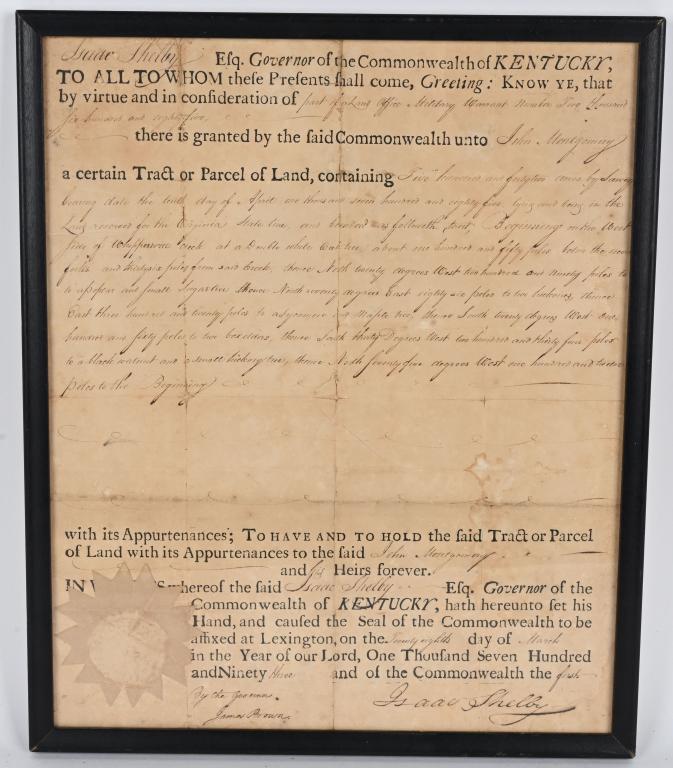 Isaac Shelby Esq. Governor of the Commonwealth of KENTUCKY,
TO ALL TO WHOM these Presents shall come, Greeting: KNOW YE, that
by virtue and in consideration of part of a Land Office Military Warrant Number Two thousand
six hundred and eighty five,
there is granted by the said Commonwealth unto John Montgomery
a certain Tract or Parcel of Land, containing Two hundred and acres by Survey
bearing date the tenth day of April one thousand seven hundred and eighty five lying and being in the
Land reserved for the Virginia State line, and bounded as followeth, towit, Beginning on the West
side of Creek at a Double white Oak tree, about one hundred and fifty poles below the
forks and thirty six poles from said Creek, thence North twenty degrees West two hundred and ninety poles to
to a poplar and small Sugartree thence North seventy degrees East eighty six poles to two hickories, thence
East three hundred and twenty poles to a sycamore and Maple tree thence South twenty degrees West one
hundred and sixty poles to two box elders, thence South thirty Degrees West two hundred and thirty four poles
to a black walnut and a small hickory tree, thence North seventy five degrees West one hundred and twelve
poles to the Beginning
with its Appurtenances; TO HAVE AND TO HOLD the said Tract or Parcel
of Land with its Appurtenances to the said John Montgomery
and his Heirs forever.
IN W S whereof the said Isaac Shelby Esq. Governor of the
Commonwealth of KENTUCKY, hath hereunto set his
Hand, and caused the Seal of the Commonwealth to be
affixed at Lexington, on the Twenty eighth day of March
in the Year of our Lord, One Thousand Seven Hundred
and Ninety three and of the Commonwealth the first
By the Governor Isaac Shelby
James Brown.